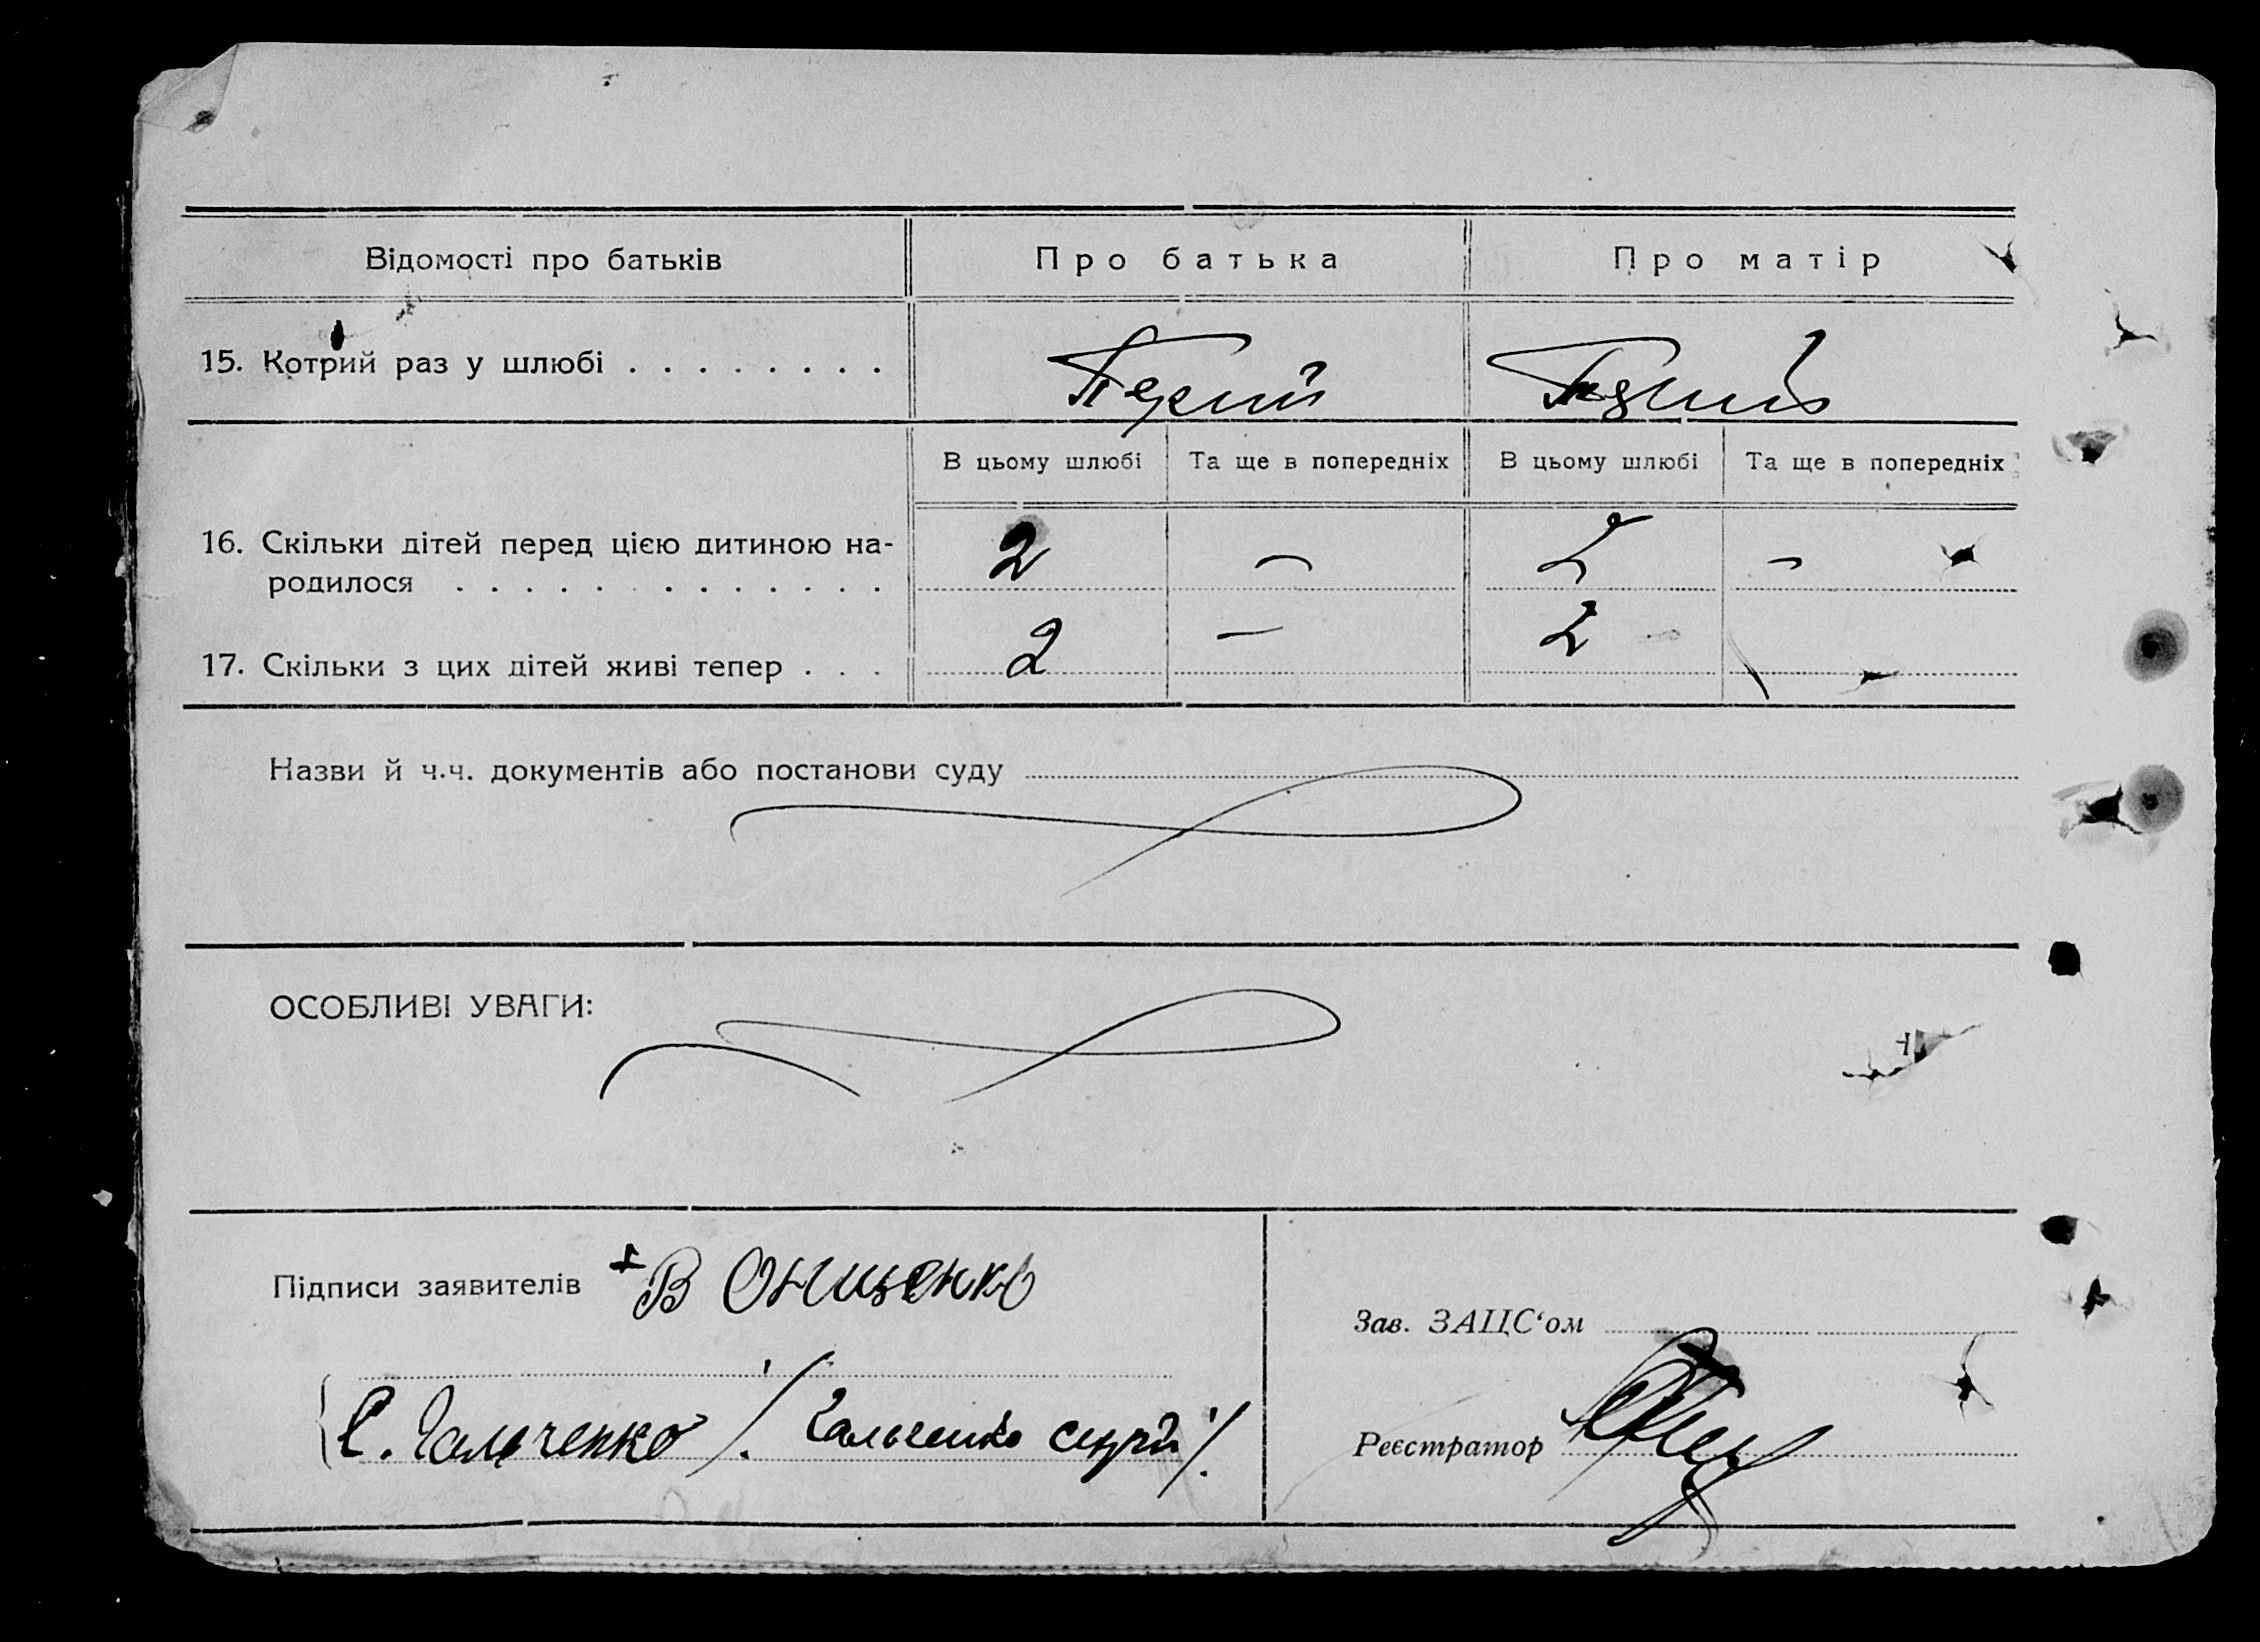 Відомості про батьків Про батька Про матір
15. Котрий раз у шлюбі . . . . . . . . Перший
В цьому шлюбі Та ще в попередніх В цьому шлюбі Та ще в попередніх
16. Скільки дітей перед цією дитиною на-
родилося . . . . . . . . . . . . . 2 — 2 —
17. Скільки з цих дітей живі тепер . . . 2 — 2
Назви й ч.ч. документів або постанови суду
ОСОБЛИВІ УВАГИ:
Підписи заявителів + В Онищенко
Зав. ЗАЦС‘ом
С. Гальченко /. Гальченко /.
Реєстратор